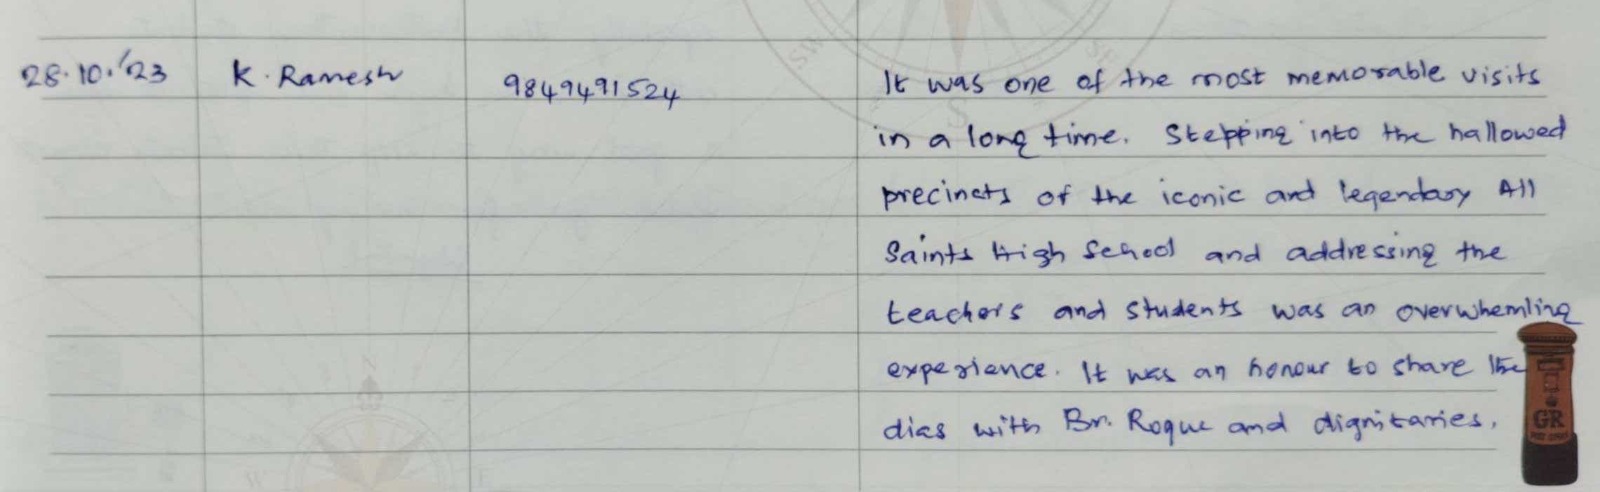 28.10.'23 K. Ramesh 9849491524 It was one of the most memorable visits
in a long time. Stepping into the hallowed
precincts of the iconic and legendary All
Saints High School and addressing the
teachers and students was an overwhemling
experience. It was an honour to share the
dias with Br. Roque and dignitaries.
SW
SE
S
N
W
E
GR
POST OFFICE